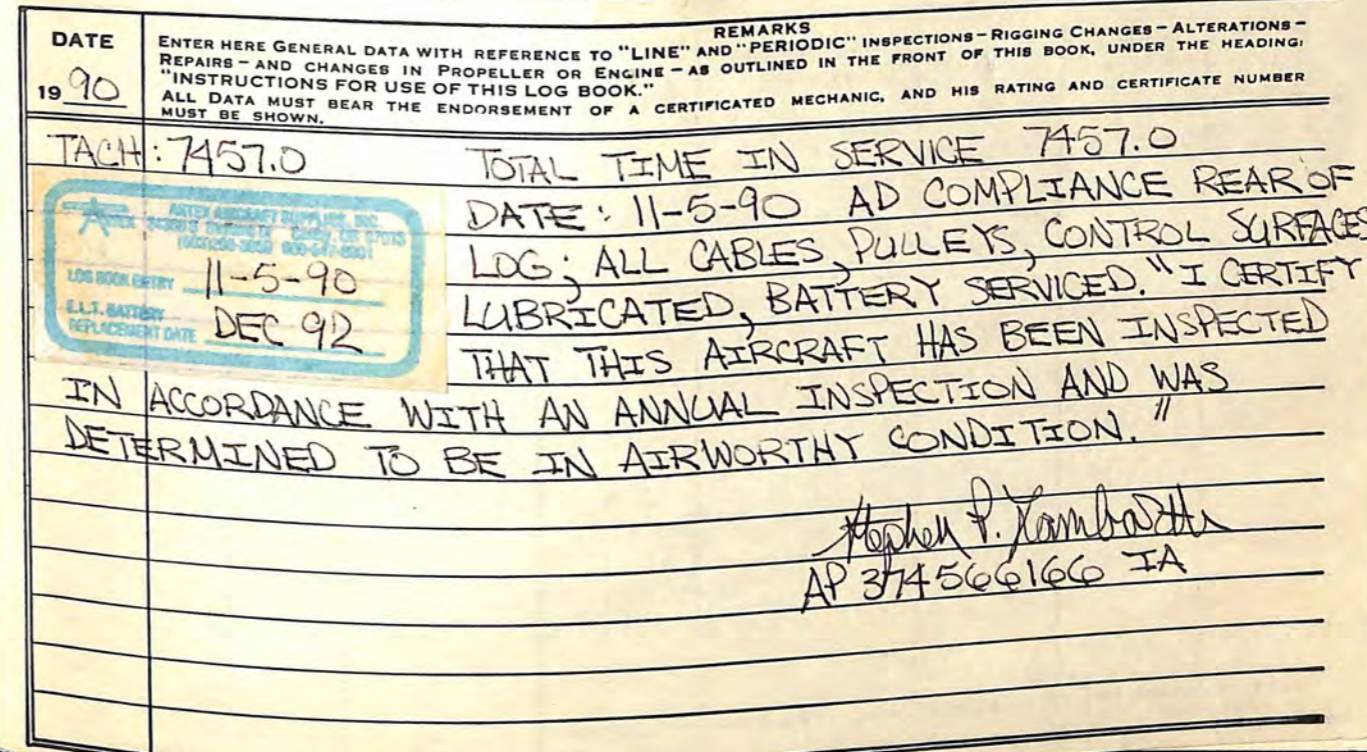 DATE
19 90
REMARKS
ENTER HERE GENERAL DATA WITH REFERENCE TO "LINE" AND "PERIODIC" INSPECTIONS – RIGGING CHANGES – ALTERATIONS –
REPAIRS – AND CHANGES IN PROPELLER OR ENGINE – AS OUTLINED IN THE FRONT OF THIS BOOK, UNDER THE HEADING:
"INSTRUCTIONS FOR USE OF THIS LOG BOOK."
ALL DATA MUST BEAR THE ENDORSEMENT OF A CERTIFICATED MECHANIC, AND HIS RATING AND CERTIFICATE NUMBER
MUST BE SHOWN.
TACH: 7457.0 TOTAL TIME IN SERVICE 7457.0
ARTEX AIRCRAFT SUPPLIES, INC.
LOG BOOK ENTRY 11-5-90
E.L.T. BATTERY
REPLACEMENT DATE DEC 92
DATE: 11-5-90 AD COMPLIANCE REAR OF
LOG; ALL CABLES, PULLEYS, CONTROL SURFACES
LUBRICATED, BATTERY SERVICED. "I CERTIFY
THAT THIS AIRCRAFT HAS BEEN INSPECTED
IN ACCORDANCE WITH AN ANNUAL INSPECTION AND WAS
DETERMINED TO BE IN AIRWORTHY CONDITION."
Stephen P.
AP 374566166 IA